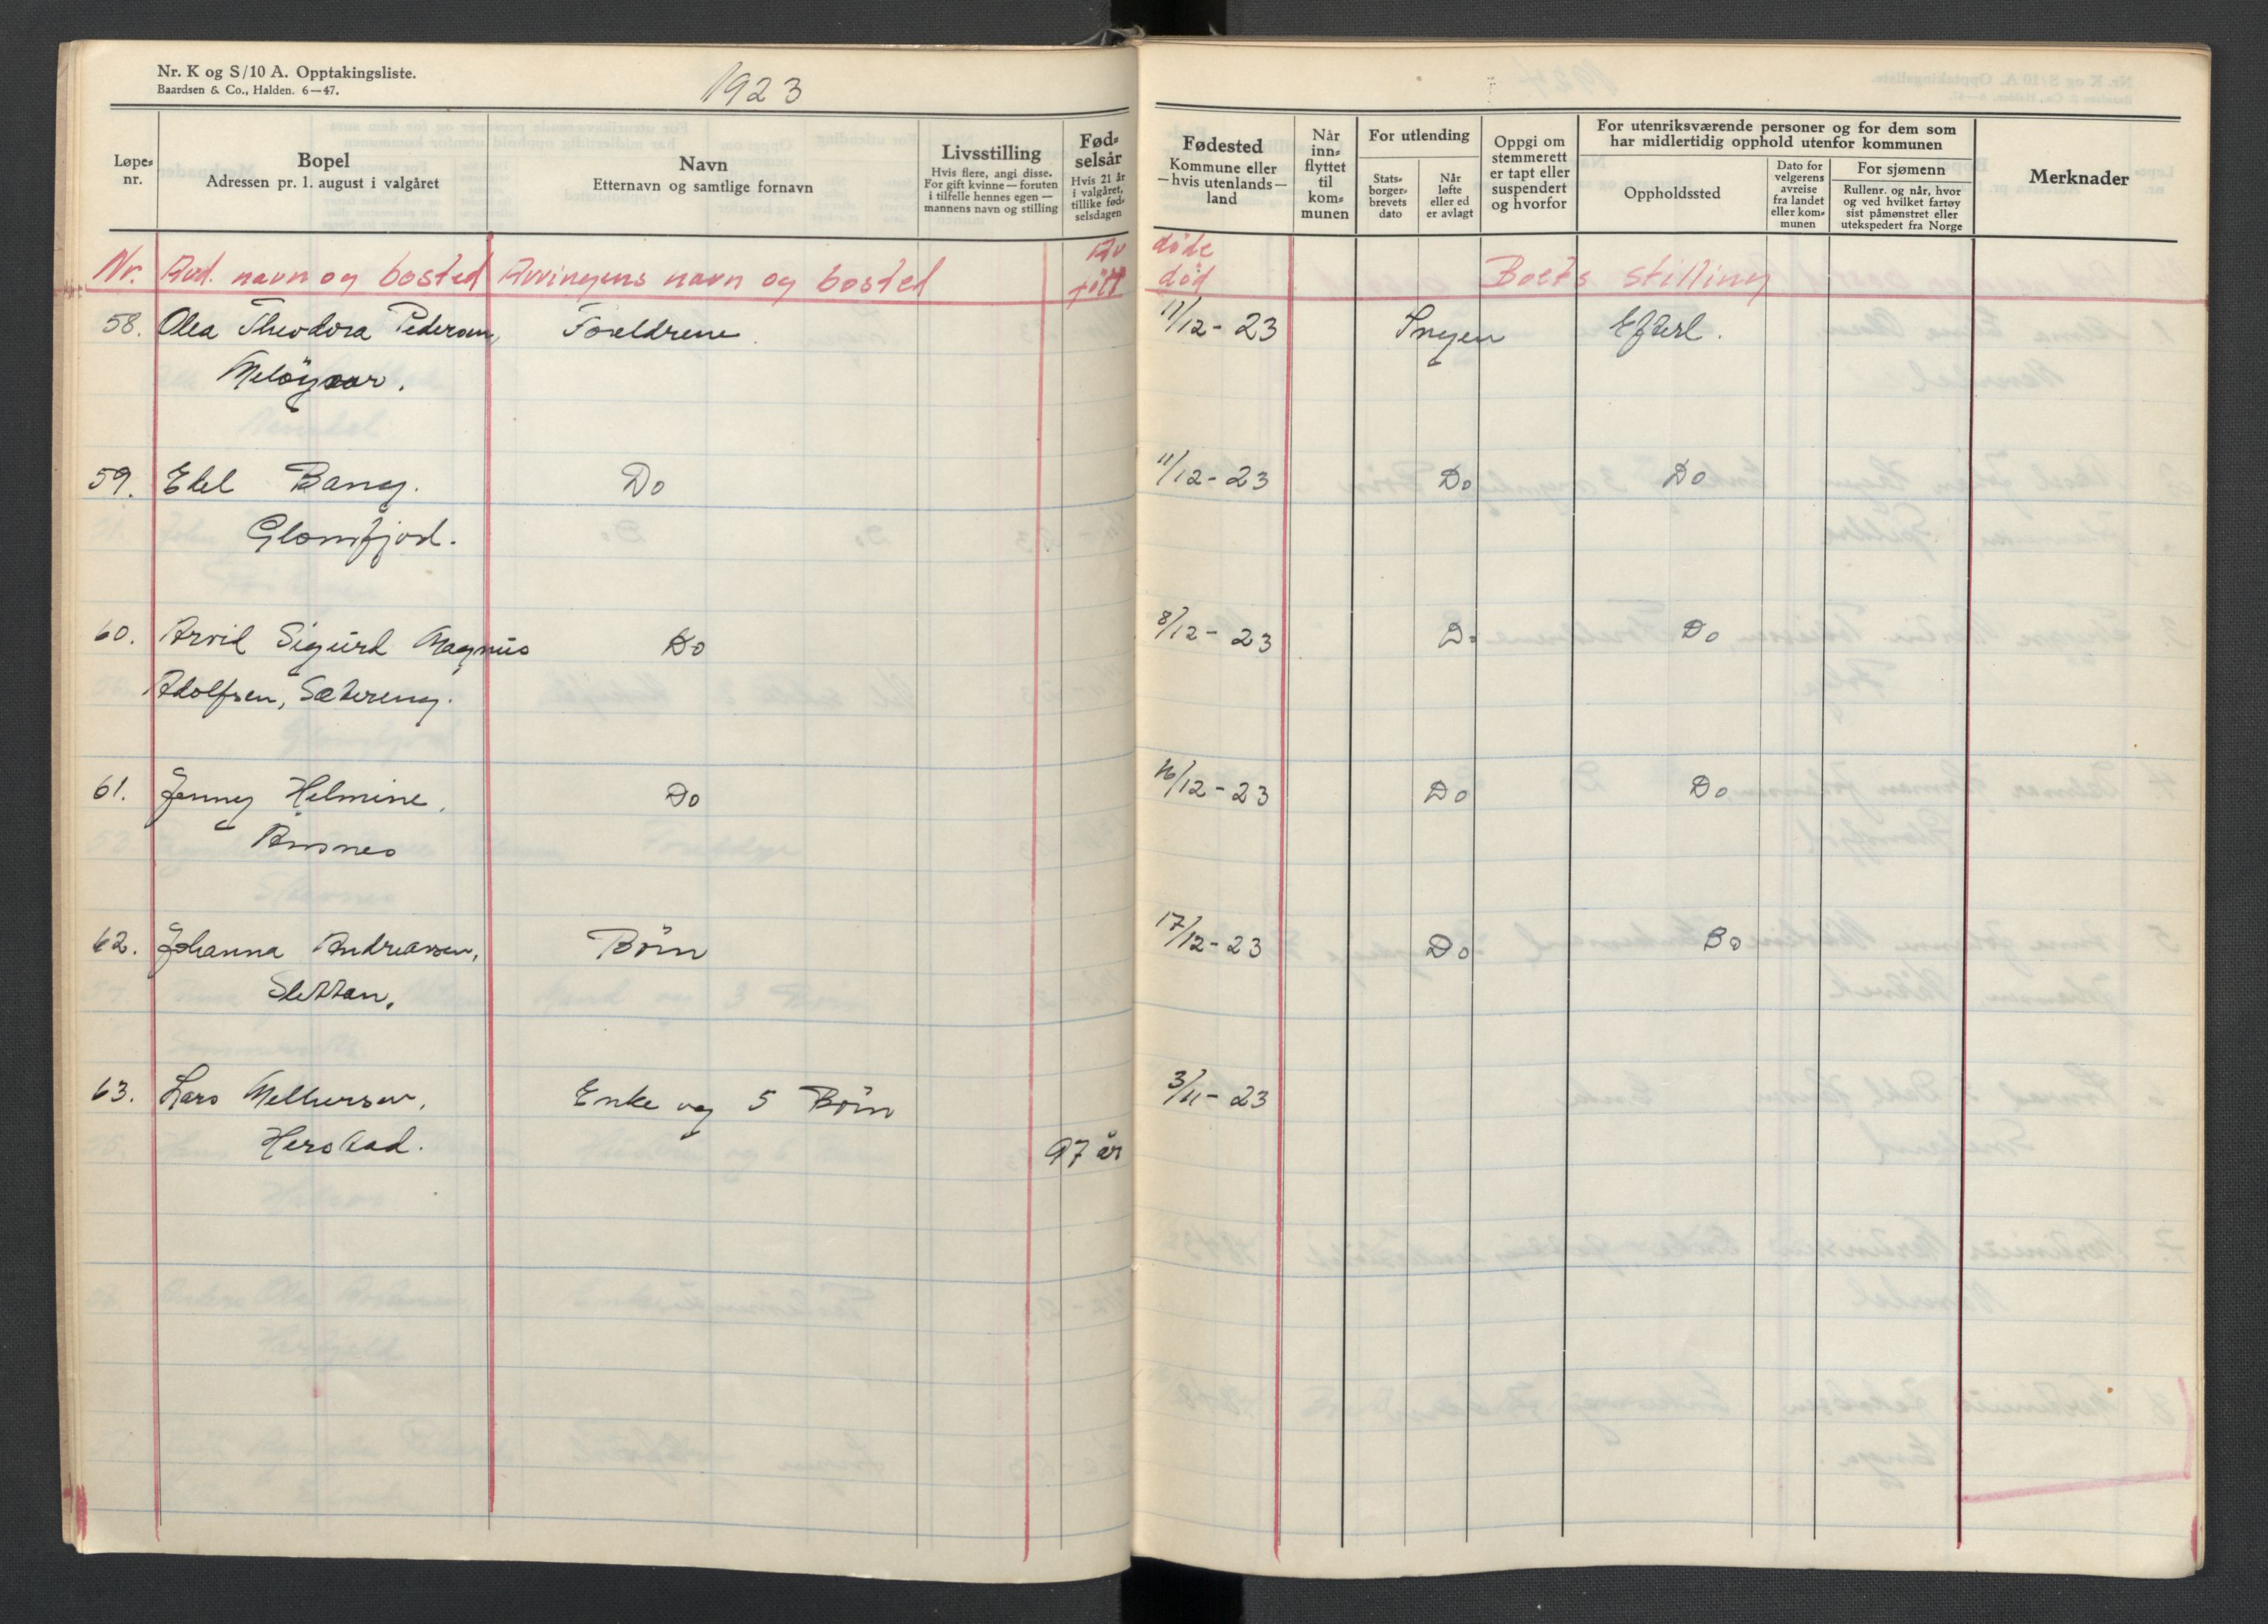 Nr. K og S/10 A. Opptakingsliste.
Baardsen & Co., Halden. 6—47.
1923
Løpe-
nr.
Bopel
Adressen pr. 1. august i valgåret
Navn
Etternavn og samtlige fornavn
Livsstilling
Hvis flere, angi disse.
For gift kvinne — foruten
i tilfelle hennes egen —
mannens navn og stilling
Fød-
selsår
Hvis 21 år
i valgåret,
tillike fød-
selsdagen
Fødested
Kommune eller
—hvis utenlands—
land
Når
inn-
flyttet
til
kom-
munen
For utlending
Stats-
borger-
brevets
dato
Når
løfte
eller ed
er avlagt
Oppgi om
stemmerett
er tapt eller
suspendert
og hvorfor
For utenriksværende personer og for dem som
har midlertidig opphold utenfor kommunen
Oppholdssted
Dato for
velgerens
avreise
fra landet
eller kom-
munen
For sjømenn
Rullenr. og når, hvor
og ved hvilket fartøy
sist påmønstret eller
utekspedert fra Norge
Merknader
Av døde
Nr. Avd. navn og bosted Arvingens navn og bosted født død Boets stilling
58. Olea Theodora Pedersen, Foreldrene 11/12 - 23 Ingen Efterl.
Meløygaar.
59. Edel Bang. Do 11/12 - 23 Do Do
Glomfjord.
60. Arvid Sigurd Magnus Do 8/12 - 23 Do Do
Adolfsen, Sætereng.
61. Jenny Helmine, Do 16/12 - 23 Do Do
Åmnes
62. Johanna Andreassen, Börn 17/12 - 23 Do Do
Slettan.
63. Lars Melhersen, Enke og 5 Börn 3/11 - 23
Herstad. 97 år